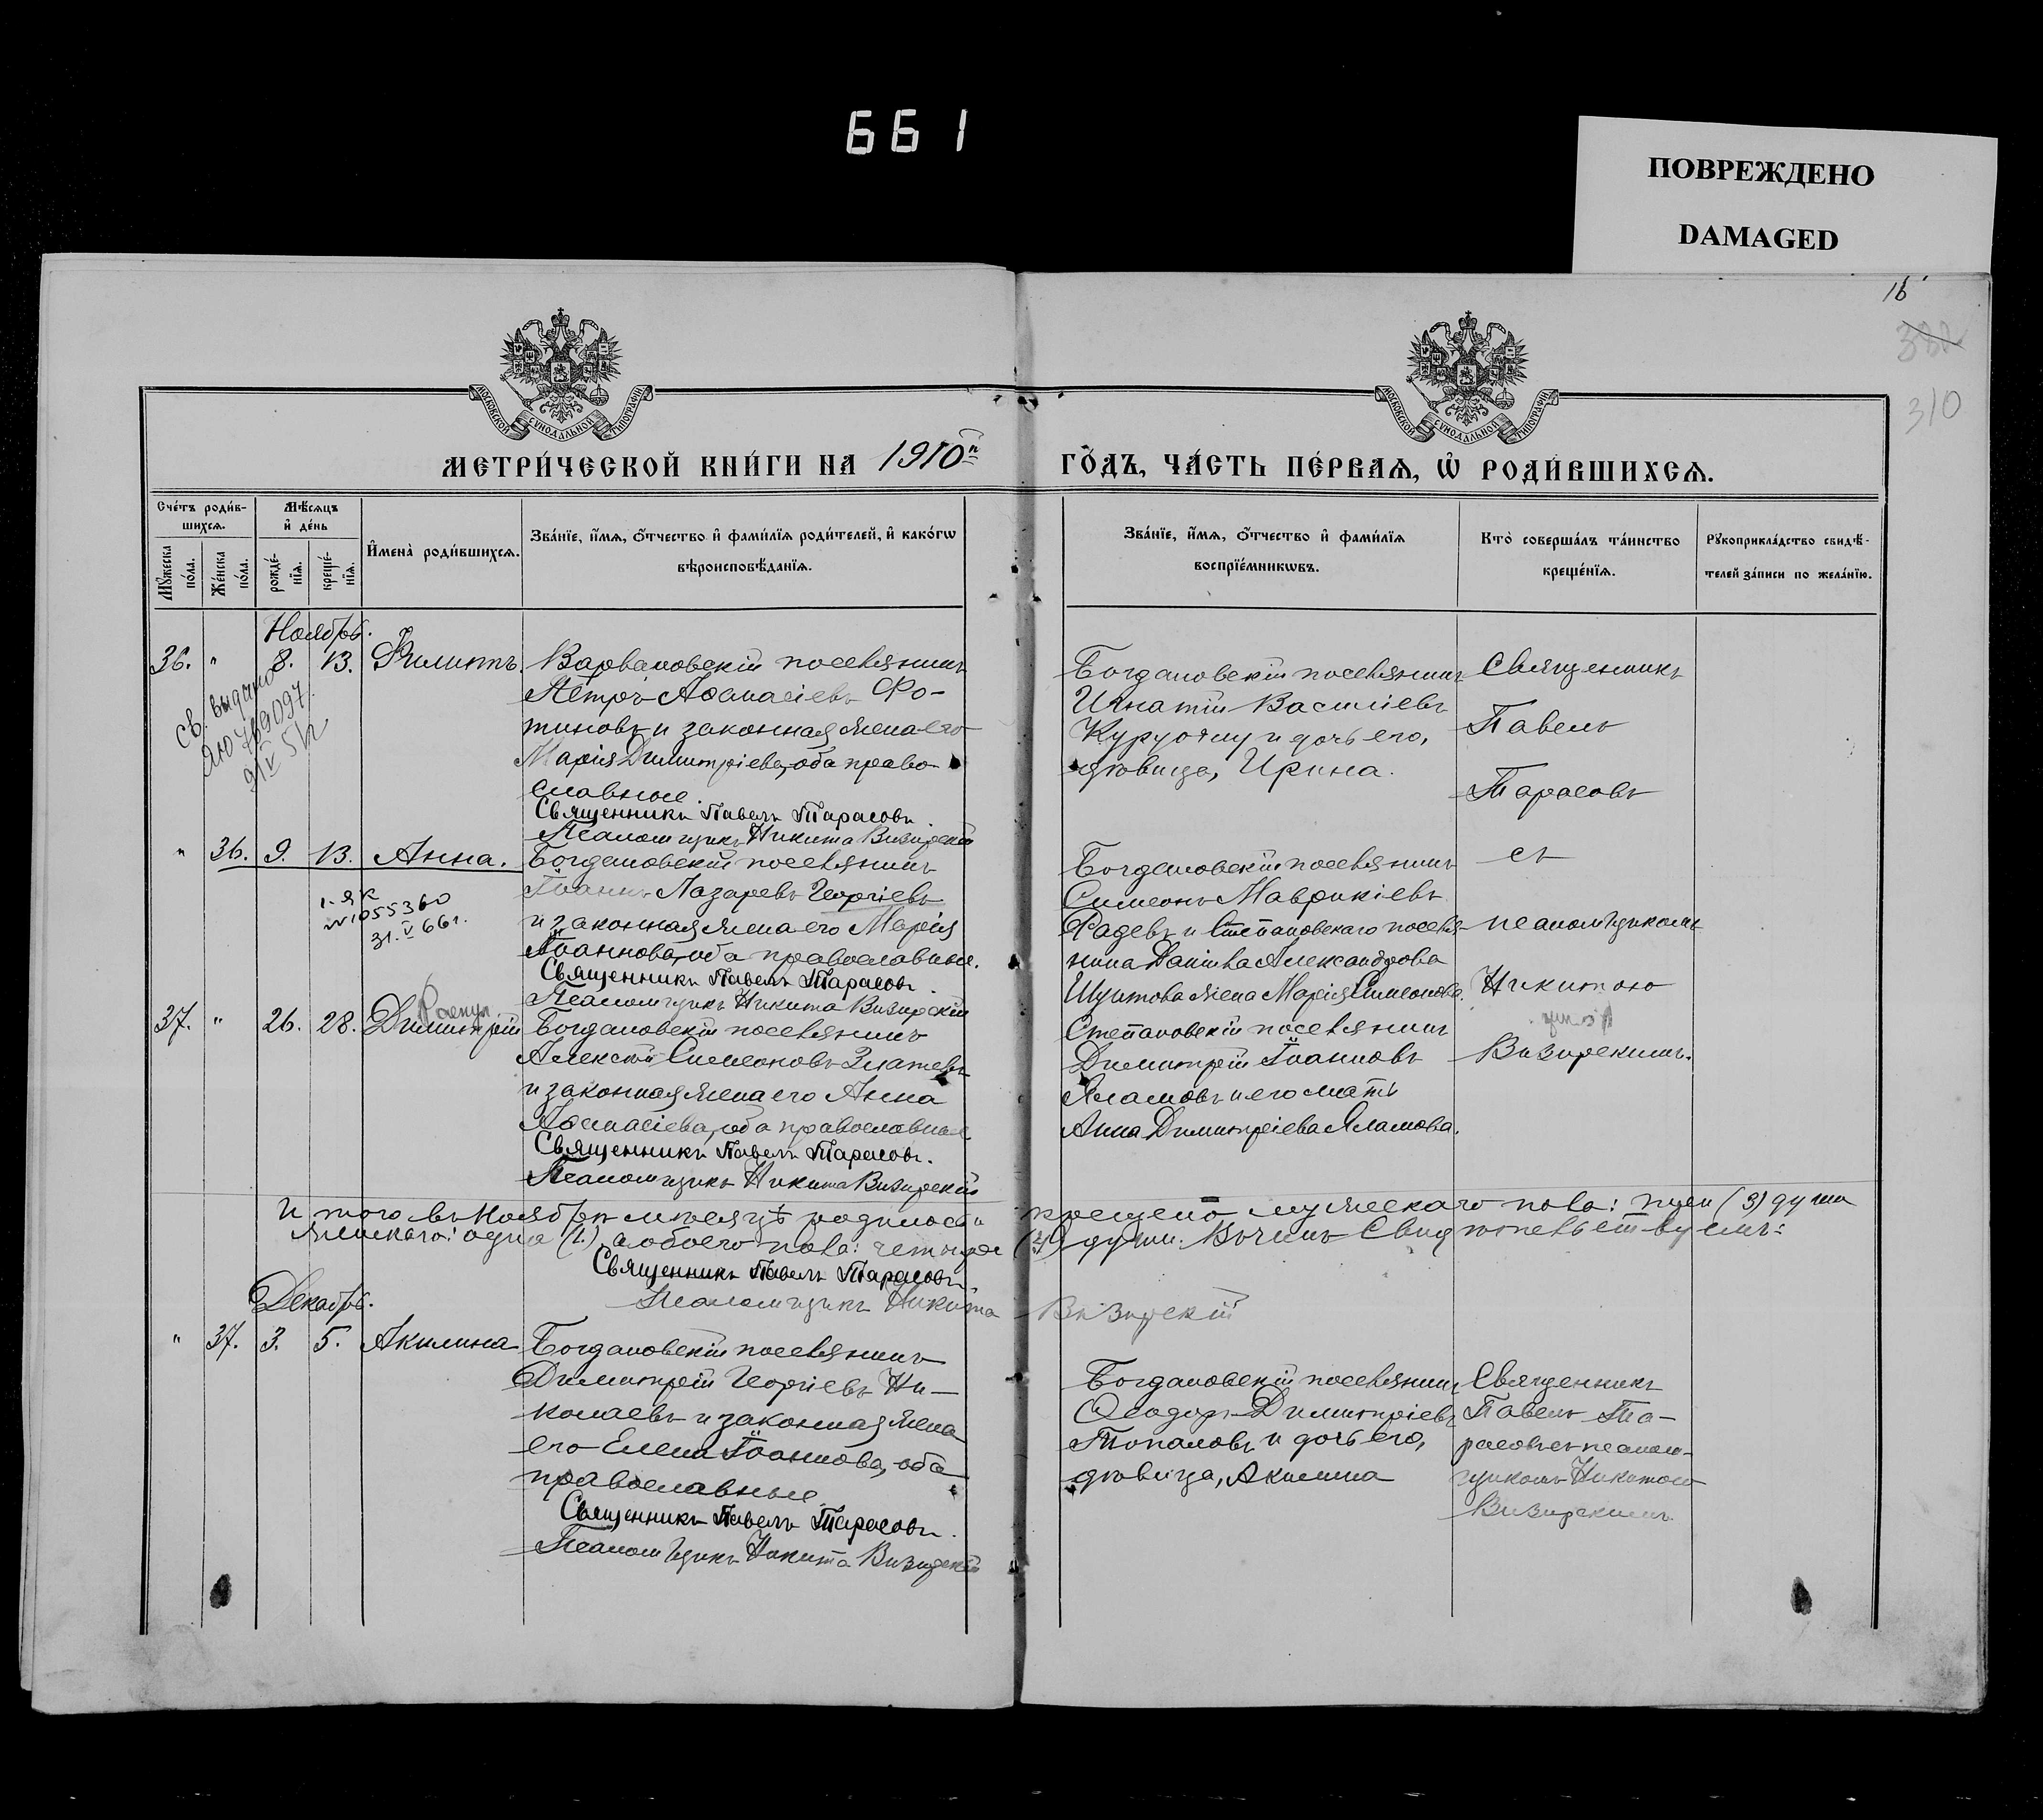 661
ПОВРЕЖДЕНО
DAMAGED
16
310
МОСКОВСКОЙ СѴНОДАЛЬНОЙ ТИПОГРАФІИ
МОСКОВСКОЙ СѴНОДАЛЬНОЙ ТИПОГРАФІИ
МЕТРИ́ЧЕСКОЙ КНИ́ГИ НА 1910й ГО́ДЪ, ЧА́СТЬ ПЕ́РВАѦ, Ѡ РОДИ́ВШИХСѦ.
Сче́тъ роди́в-
шихсѧ.
Мꙋ́жеска
по́ла.
Же́нска
по́ла.
Мѣ́сѧцъ
и҆ де́нь
рожде́-
нїѧ.
креще́-
нїѧ.
И҆мена̀ роди́вшихсѧ.
Зва́нїе, и҆́мѧ, ѻ҆́тчество и҆ фами́лїѧ роди́телей, и҆ како́гѡ
вѣроисповѣ́данїѧ.
Зва́нїе, и҆́мѧ, ѻ҆́тчество и҆ фами́лїѧ
воспрїе́мникѡвъ.
Кто̀ соверша́лъ та́инство
креще́нїѧ.
Рꙋкоприкла́дство свидѣ́-
телей за́писи по жела́нїю.
Ноябрь.
36. " 8. 13. Филиппъ.
Варвановскій поселянинъ
Петръ Аѳанасіевъ Фо-
тиновъ и законная жена его
Марія Димитріева, оба право-
славные.
Священникъ Павелъ Тарасовъ.
Псаломщикъ Никита Визирскій
Богдановскій поселянинъ
Игнатій Василіевъ
и дочь его,
дѣвица, Ирина.
Священникъ
Павелъ
Тарасовъ
съ
псаломщикомъ
Никитою
Визирскимъ.
Св. выдано
ЯЮ 769097
" 36. 9. 13. Анна.
1-ЯК
№1055360
31.V 66г.
Богдановскій поселянинъ
Іоаннъ Лазаревъ Георгіевъ
и законная жена его Марія
Іоаннова, оба православные.
Священникъ Павелъ Тарасовъ.
Псаломщикъ Никита Визирскій
Богдановскій поселянинъ
Симеонъ Маврикіевъ
и Степановскаго поселя-
нина Даніила Александрова
жена Марія Симеонова.
37. " 26. 28. Димитрій
Богдановскій поселянинъ
Алексѣй Симеоновъ Златевъ
и законная жена его Анна
Аѳанасіева, оба православные.
Священникъ Павелъ Тарасовъ.
Псаломщикъ Никита Визирскій
Степановскій поселянинъ
Димитрій Іоанновъ
Яламовъ и его мать
Анна Димитріева Яламова.
Итого въ Ноябрѣ мѣсяцѣ родилось и крещено мужескаго пола: три (3) души
женскаго: одна (1.), а обоего пола: четыре (4) души. Въ чемъ свидѣтельствуемъ:
Священникъ Павелъ Тарасовъ.
Псаломщикъ Никита Визирскій
Декабрь.
" 37. 3. 5. Акилина
Богдановскій поселянинъ
Димитрій Георгіевъ Ни-
колаевъ и законная жена
его Елена Іоаннова, оба
православные.
Священникъ Павелъ Тарасовъ.
Псаломщикъ Никита Визирскій
Богдановскій поселянинъ
Ѳеодоръ Димитріевъ
Топаловъ и дочь его,
дѣвица, Акилина
Священникъ
Павелъ Та-
расовъ съ псалом-
щикомъ Никитою
Визирскимъ